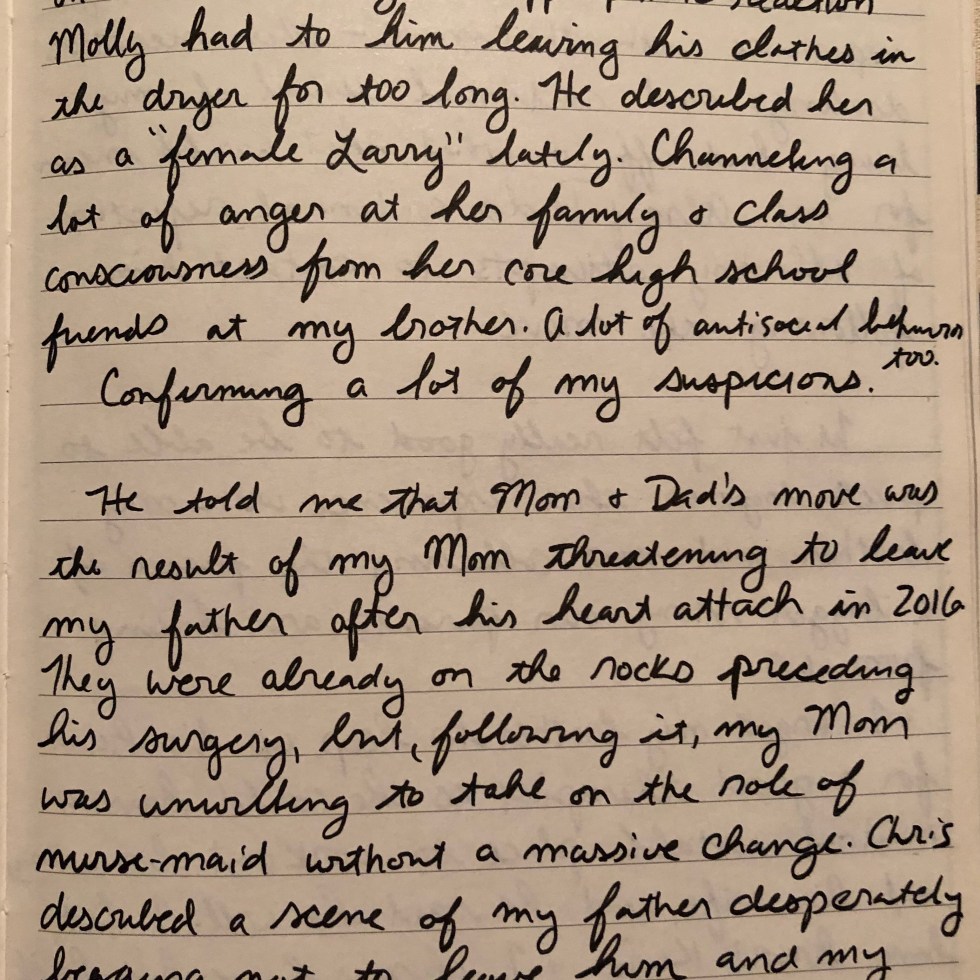 reaction
Molly had to him leaving his clothes in
the dryer for too long. He described her
as a "female Larry" lately. Channeling a
lot of anger at her family & class
consciousness from her core high school
friends at my brother. A lot of antisocial behavior
too.
Confirming a lot of my suspicions.
He told me that Mom & Dad's move was
the result of my Mom threatening to leave
my father after his heart attack in 2016
They were already on the rocks preceding
his surgery, but, following it, my Mom
was unwilling to take on the role of
nurse-maid without a massive change. Chris
described a scene of my father desperately
begging not to leave him and my